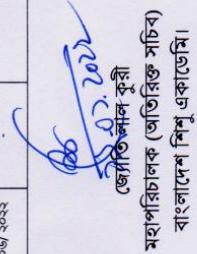 ০৬/২০২২
জ্যোতি লাল কুরী
মহাপরিচালক (অতিরিক্ত সচিব)
বাংলাদেশ শিশু একাডেমি।